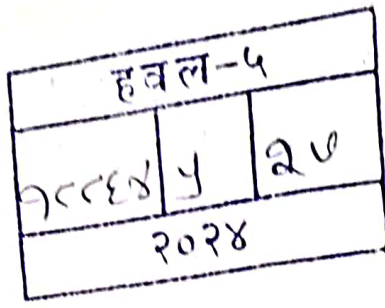 हवल-५
१८८६४ ५ २७
२०२४